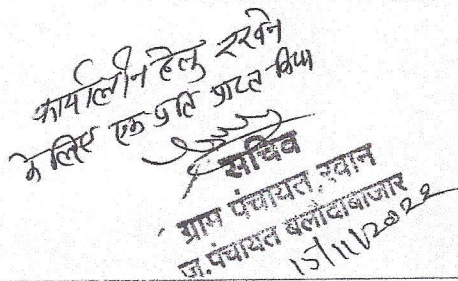 कार्यालीन हेतु रखने
के लिए एक प्रति प्राप्त किया
सचिव
ग्राम पंचायत, रवान
ज.पंचायत बलौदाबाजार
15/11/2022